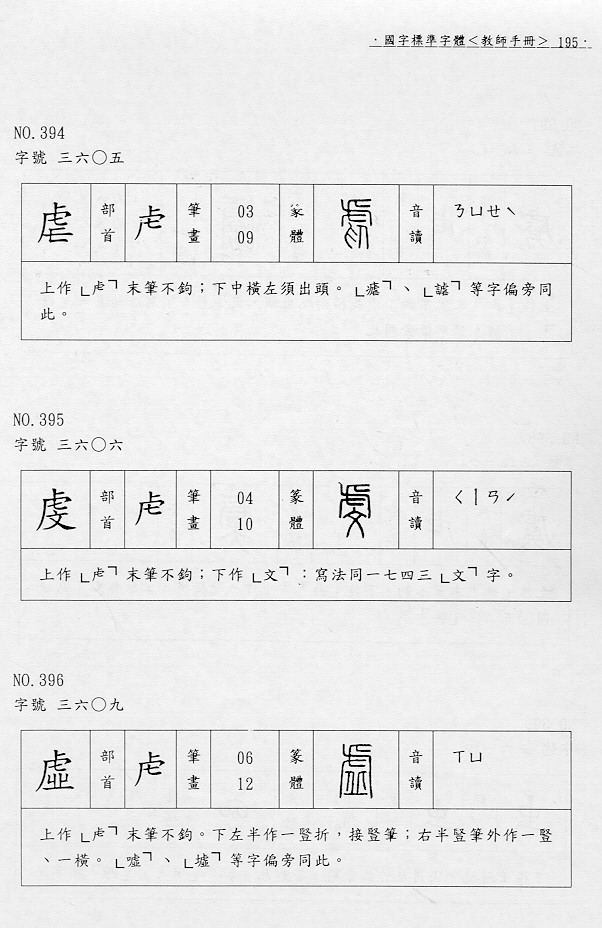 ·國字標準字體＜教師手冊＞ 195·
NO.394
字號 三六〇五
虐 部首 虍 筆畫 03 09 篆體 虐 音讀 ㄋㄩㄝˋ
上作﹂虍﹁末筆不鉤；下中橫左須出頭。﹂瘧﹁、﹂謔﹁等字偏旁同
此。
NO.395
字號 三六〇六
虔 部首 虍 筆畫 04 10 篆體 虔 音讀 ㄑㄧㄢˊ
上作﹂虍﹁末筆不鉤；下作﹂文﹁：寫法同一七四三﹂文﹁字。
NO.396
字號 三六〇九
虛 部首 虍 筆畫 06 12 篆體 虛 音讀 ㄒㄩ
上作﹂虍﹁末筆不鉤。下左半作一豎折，接豎筆；右半豎筆外作一豎
、一橫。﹂噓﹁、﹂墟﹁等字偏旁同此。